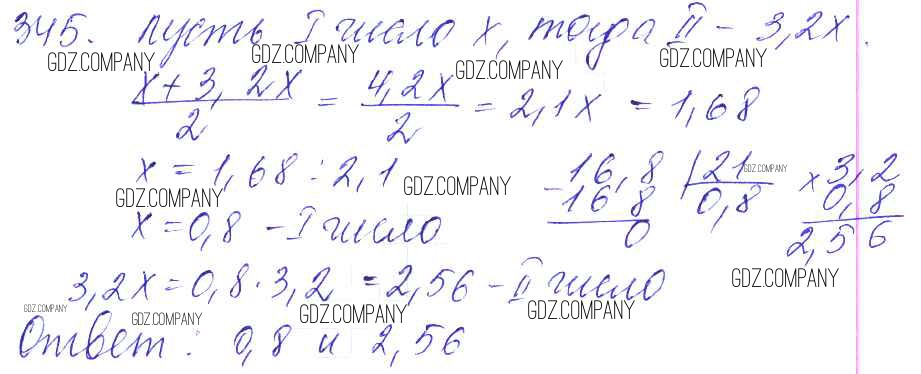 345. Пусть I число x, тогда II – 3,2x.
(x + 3,2x)/2 = 4,2x/2 = 2,1x = 1,68
x = 1,68 : 2,1
x = 0,8 – I число
– 16,8 | 21
16 8 | 0,8
0
× 3,2
0,8
2,56
3,2x = 0,8 · 3,2 = 2,56 – II число
Ответ: 0,8 и 2,56
GDZ.COMPANY
GDZ.COMPANY
GDZ.COMPANY
GDZ.COMPANY
GDZ.COMPANY
GDZ.COMPANY
GDZ.COMPANY
GDZ.COMPANY
GDZ.COMPANY
GDZ.COMPANY
GDZ.COMPANY
GDZ.COMPANY